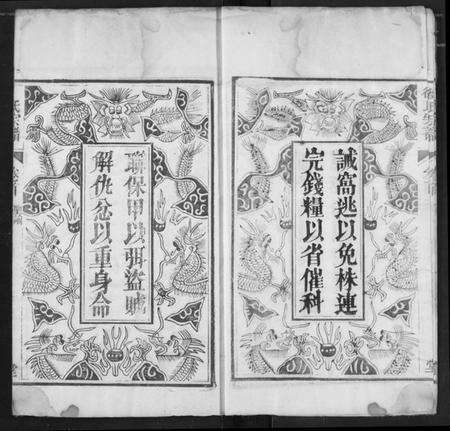 誡窩逃以免株連
完錢糧以省催科
聯保甲以弭盜賊
解仇忿以重身命